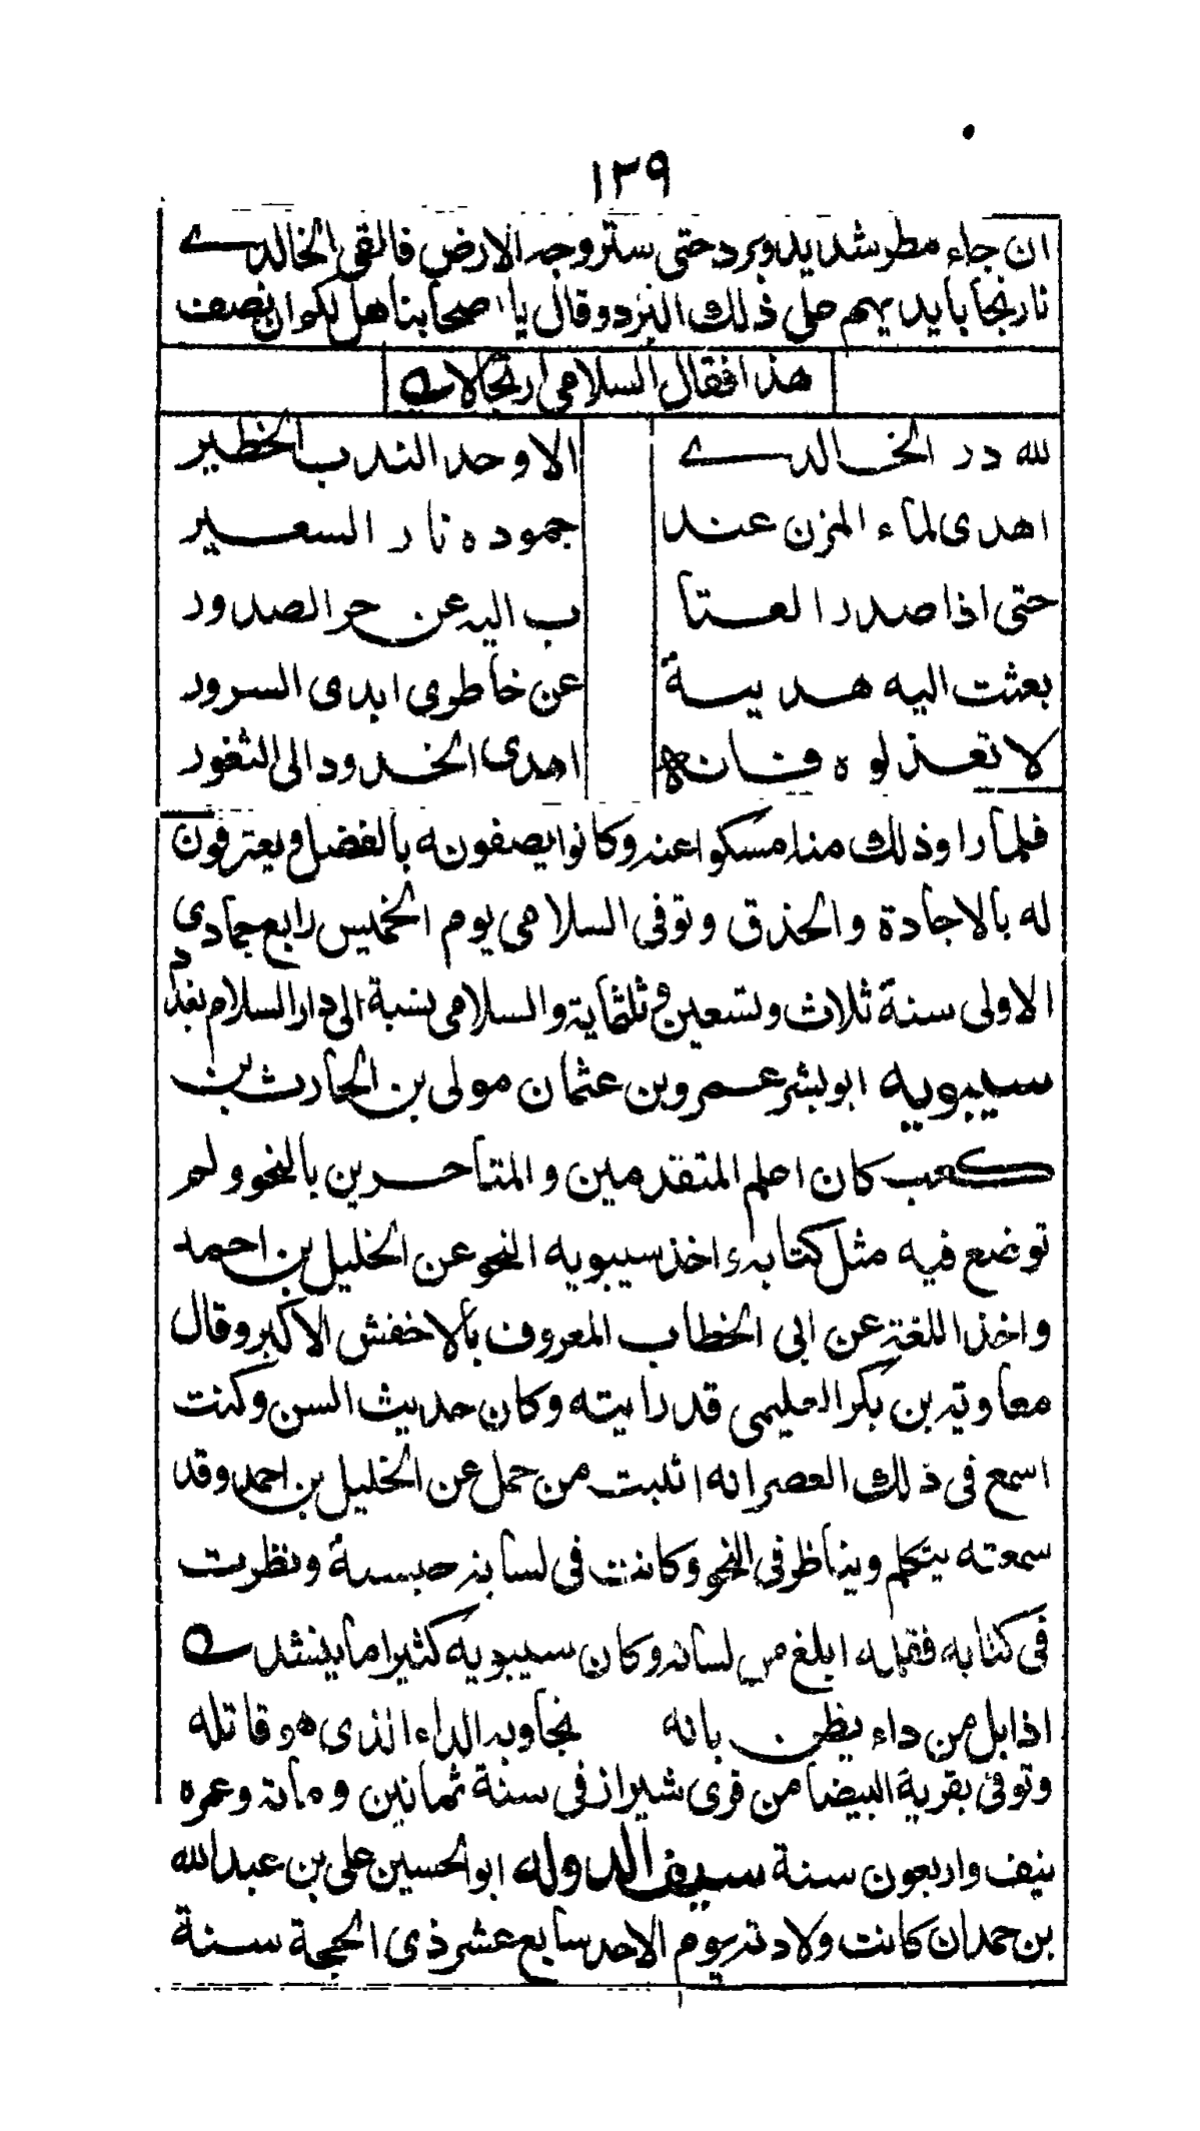 ١٣٩
ان جاء مطر شديد وبرد حتى ستر وجه الارض فالقى الخالدے
نارنجا بايديهم على ذلك البرد وقال يا اصحابنا هل لكم ان نصف
هذا فقال السلامى ارتجالا
لله در الخالدے الاوحد الندب الخطير
اهدى لماء المزن عند جموده نار السعير
حتى اذا صدر العتا ب اليه عن حر الصدور
بعثت اليه هدية عن خاطرى ايدى السرور
لا تعذلوه فانه اهدى الخدود الى الثغور
فلما راوذلك منه امسكوا عنه وكانوا يصفونه بالفضل ويعترفون
له بالاجادة والحذق وتوفى السلامى يوم الخميس رابع جمادى
الاولى سنة ثلاث وتسعين وثلثماية والسلامى نسبة الى دار السلام بغداد
سيبويه ابو بشر عمرو بن عثمان مولى بن الحارث بن
كعب كان اعلم المتقدمين والمتاخرين بالنحو ولم
توضع فيه مثل كتابه ء اخذ سيبويه النحو عن الخليل بن احمد
واخذ اللغة عن ابى الخطاب المعروف بالاخفش الاكبر وقال
معاوية بن بكر العليمى قد رايته وكان حديث السن وكنت
اسمع فى ذلك العصر انه اثبت من حمل عن الخليل بن احمد وقد
سمعته يتكلم ويناظر فى النحو وكانت فى لسانه حبسة ونظرت
فى كتابه فقلمه ابلغ من لسانه وكان سيبويه كثيرا ما ينشد
اذا بل من داء يظن بانه نجا وبه الداء الذى هو قاتله
وتوفى بقرية البيضا من قرى شيراز فى سنة ثمانين ومأنة وعمره
نيف واربعون سنة سيف الدوله ابو الحسين على بن عبد الله
بن حمدان كانت ولادته يوم الاحد سابع عشر ذى الحجة سنة